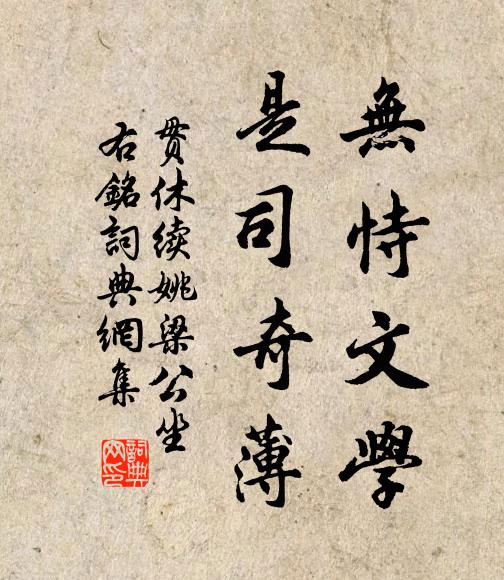 無恃文學
是司奇薄
貫休续姚梁公坐
右銘詞典網集
詞典网印